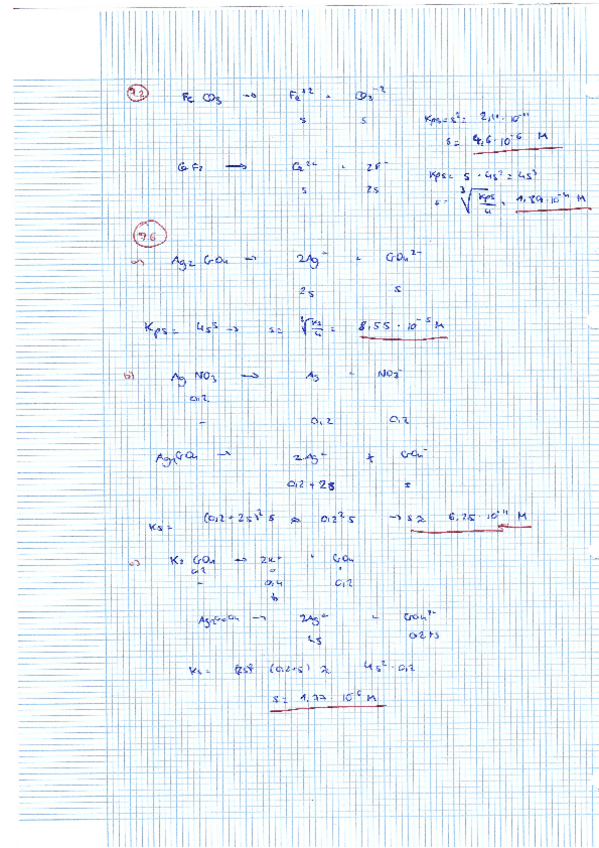 7.2 FeCO3 → Fe+2 + CO3-2
s s Kps = s² = 2,11·10-11
s = 4,6·10-6 M
CaF2 → Ca2+ + 2F-
s 2s Kps = s·4s² = 4s³
s = ∛(Kps/4) = 1,89·10-4 M
7.6
a) Ag2CrO4 → 2Ag+ + CrO42-
2s s
Kps = 4s³ → s = ∛(Ks/4) = 8,55·10-5 M
b) AgNO3 → Ag + NO3-
0,2
- 0,2 0,2
Ag2CrO4 → 2Ag+ + CrO4-
0,2+2s s
Ks = (0,2+2s)² s ≈ 0,2² s → s ≈ 6,25·10-11 M
c) K2CrO4 → 2K+ + CrO4
0,2 - -
- 0,4 0,2
Ag2CrO4 → 2Ag+ + CrO42-
2s 0,2+s
Ks = (0,2+s) ≈ 4s²·0,2
s = 1,77·10-6 M